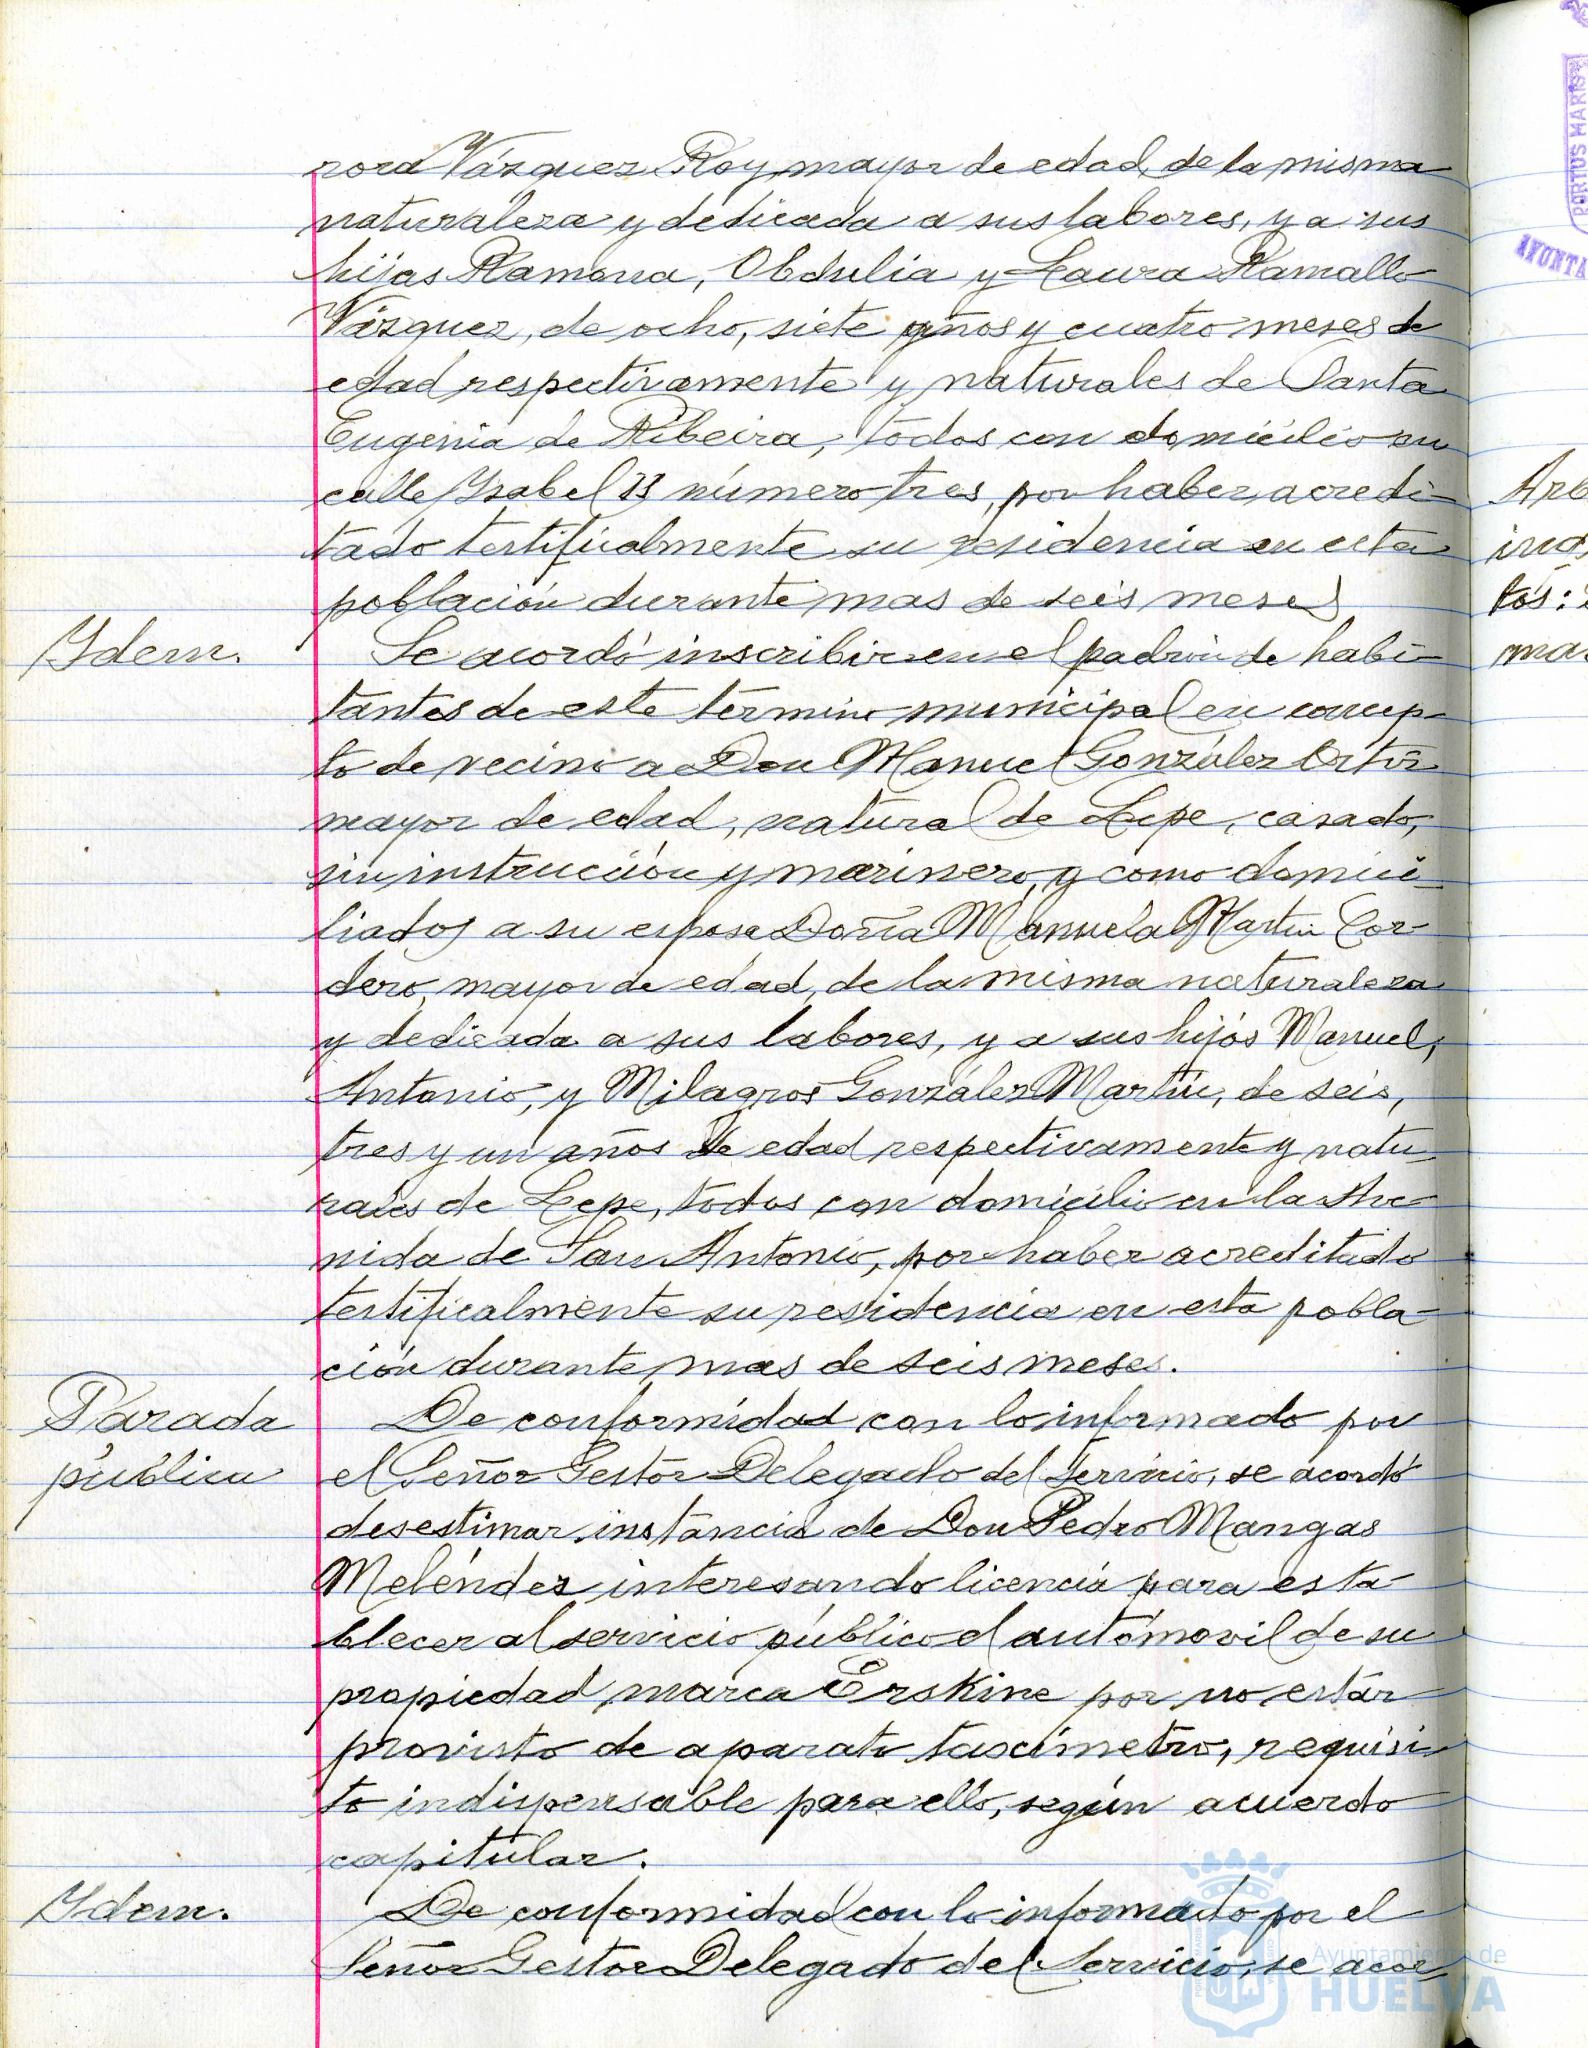 nora Vázquez Roy mayor de edad, de la misma
naturaleza y dedicada a sus labores, y a sus
hijas Ramona, Obdulia y Laura Ramallo
Vázquez, de ocho, siete años y cuatro meses de
edad respectivamente y naturales de Santa
Eugenia de Ribeira, todos con domicilio en
calle Ysabel II número tres, por haber acredi-
tado testificalmente su residencia en esta
población durante mas de seis meses
Ydem.
Se acordó inscribir en el padrón de habi-
tantes de este término municipal en concep-
to de vecino a Don Manuel González
mayor de edad, natural de Lepe, casado,
sin instrucción y marinero, y como domici-
liados a su esposa Doña Manuela Martin Cor-
dero, mayor de edad, de la misma naturaleza
y dedicada a sus labores, y a sus hijos Manuel,
Antonio, y Milagros González Martín, de seis,
tres y un años de edad respectivamente y natu-
rales de Lepe, todos con domicilio en la Ave-
nida de San Antonio, por haber acreditado
testificalmente su residencia en esta pobla-
ción durante mas de seis meses.
Parada
pública
De conformidad con lo informado por
el Señor Gestor Delegado del Servicio, se acordó
desestimar instancia de Don Pedro Mangas
Meléndez interesando licencia para esta-
blecer al servicio público el automóvil de su
propiedad marca Erskine por no estar
provisto de aparato tascímetro, requisi-
to indispensable para ello, según acuerdo
capitular.
Ydem.
De conformidad con lo informado por el
Señor Gestor Delegado del Servicio, se acor-
PORTUS MARIS
AYUNTA
tos:
ma
Ayuntamiento de
HUELVA